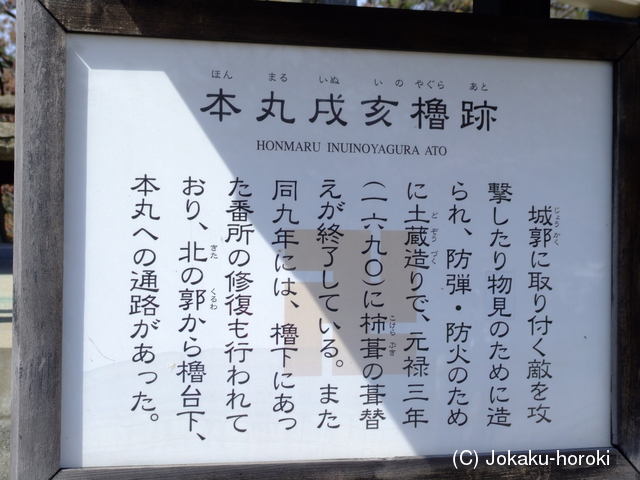 ほん まる いぬ い の やぐら あと
本丸戌亥櫓跡
HONMARU INUINOYAGURA ATO
城郭に取り付く敵を攻
じょう かく
撃したり物見のために造
られ、防弾・防火のため
に土蔵造りで、元禄三年
ど ぞう づく
(一六九〇)に柿葺の葺替
こけら ぶき
えが終了している。また
同九年には、櫓下にあっ
た番所の修復も行われて
おり、北の郭から櫓台下、
きた くるわ
本丸への通路があった。
(C) Jokaku-horoki